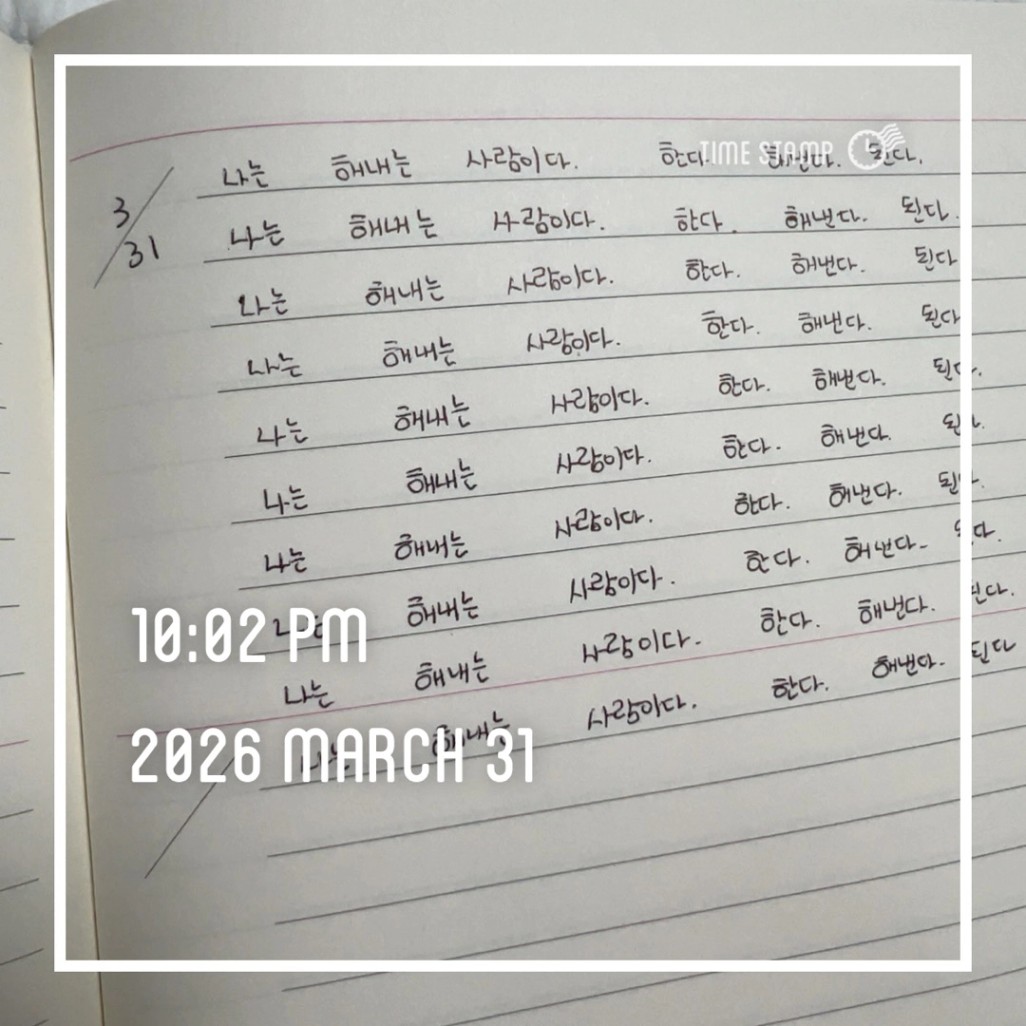 TIME STAMP
3/31
나는 해내는 사람이다. 한다. 해낸다. 된다.
나는 해내는 사람이다. 한다. 해낸다. 된다.
나는 해내는 사람이다. 한다. 해낸다. 된다
나는 해내는 사람이다. 한다. 해낸다. 된다
나는 해내는 사람이다. 한다. 해낸다. 된다.
나는 해내는 사람이다. 한다. 해낸다. 된다.
나는 해내는 사람이다. 한다. 해낸다. 된다.
나는 해내는 사람이다. 한다. 해낸다. 된다.
나는 해내는 사람이다. 한다. 해낸다. 된다.
나는 해내는 사람이다. 한다. 해낸다. 된다
10:02 PM
2026 MARCH 31